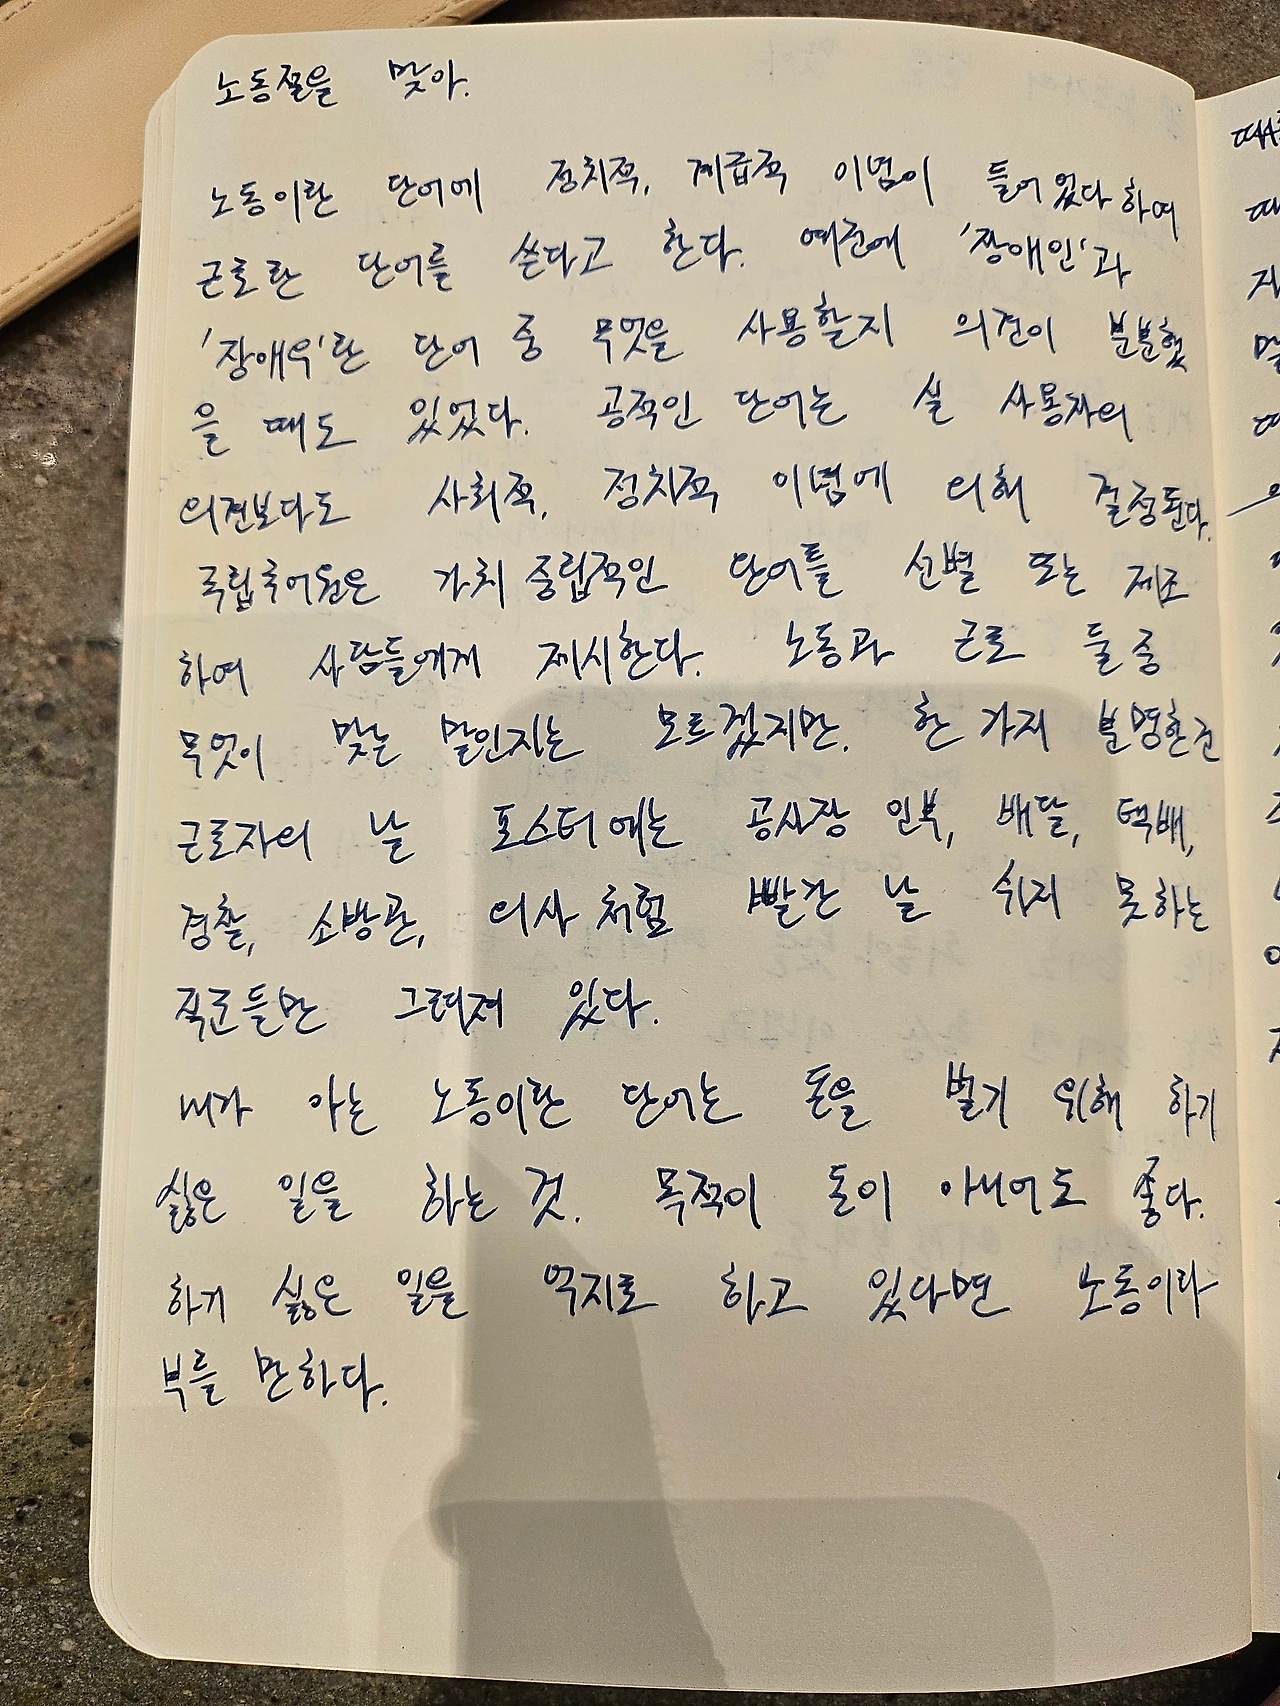 노동절을 맞아.
노동이란 단어에 정치적, 계급적 이념이 들어있다 하여
근로란 단어를 쓴다고 한다. 예전에 '장애인'과
'장애우'란 단어 중 무엇을 사용할지 의견이 분분했
을 때도 있었다. 공적인 단어는 실 사용자의
의견보다도 사회적, 정치적 이념에 의해 결정된다.
국립국어원은 가치 중립적인 단어를 선별 또는 제조
하여 사람들에게 제시한다. 노동과 근로 둘 중
무엇이 맞는 말인지는 모르겠지만, 한 가지 분명한건
근로자의 날 포스터에는 공사장 인부, 배달, 택배,
경찰, 소방관, 의사처럼 빨간 날 쉬지 못하는
직군들만 그려져 있다.
내가 아는 노동이란 단어는 돈을 벌기 위해 하기
싫은 일을 하는 것. 목적이 돈이 아니어도 좋다.
하기 싫은 일을 억지로 하고 있다면 노동이라
부를 만하다.